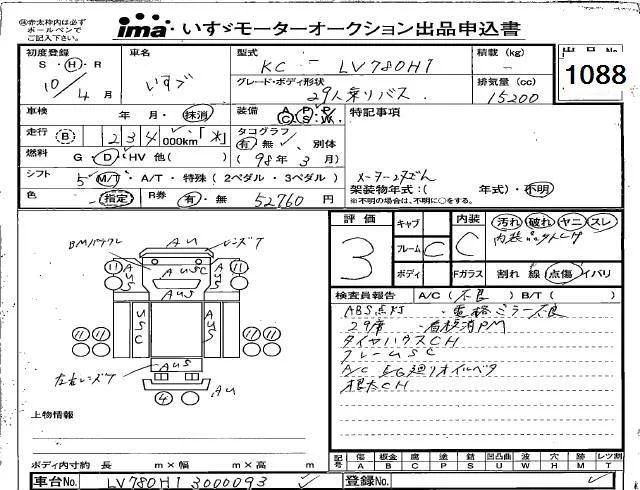 ※赤太枠内は必ず
ボールペンで
ご記入下さい。
ima いすゞモーターオークション出品申込書
初度登録 車名 型式 積載(kg) 出品No
S・H・R いすゞ KC - LV780H1 -
10/4月 グレード・ボディ形状 排気量(cc) 1088
29人乗りバス 15200
車検 年 月・抹消 装備 A P P C S W 特記事項
走行 B 234,000km
タコグラフ
有 無 別体
燃料 G・D・HV 他( ) (98年3月)
シフト 5 M/T・A/T・特殊(2ペダル・3ペダル)
架装物年式:( 年式)・不明
※不明の場合は、不明に○をする。
色 - 指定 R券 有・無 52760円
評価 キャブ 内装 汚れ 破れ ヤニ スレ
3 フレーム C C
ボディ Fガラス 割れ 線 点傷 イバリ
検査員報告 A/C(不良) B/T( )
ABS点灯 電格ミラー不良
29席 看板消PM
タイヤハウスCH
フレームUSC
A/C EG廻りオイルベタ
根太CH
AU レンズワレ
AUSC
11 AUS AUS 11
AUS
USC AUS
11 11 11 11
AUS
左右レンズワレ
4 AU
上物情報
ボディ内寸約 長 m×幅 m×高 m
記号 傷 板金 腐 塗 錆 凹凸曲 波 穴 跡 レツ割
A B C P S U W H M T
車台No. LV780H1 3000093 登録No.